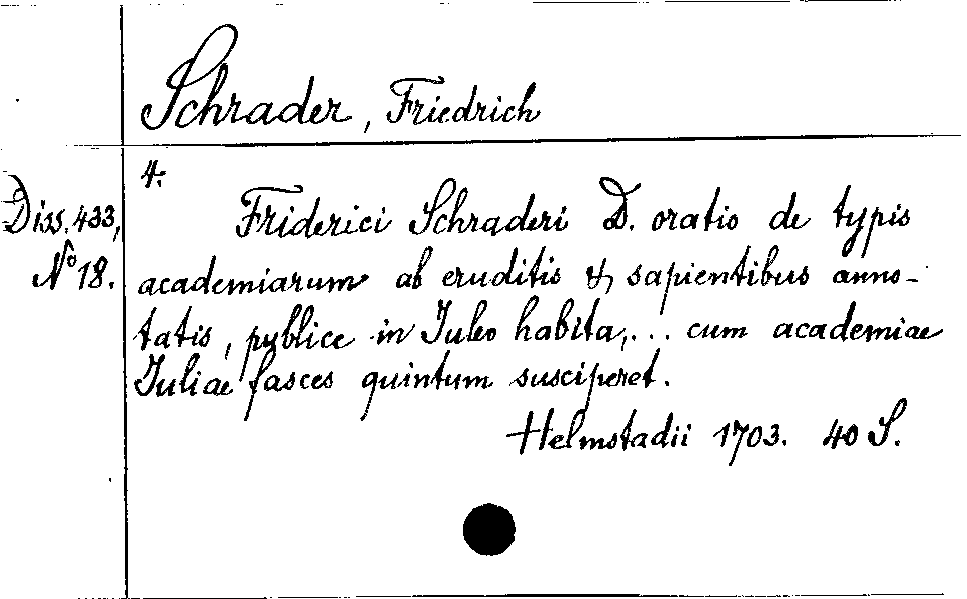 Schrader, Friedrich
4.
Diss. 433,
No 18.
Friderici Schraderi D. oratio de typis
academiarum ab eruditis & sapientibus anno-
tatis, publice in Juleo habita,... cum academiae
Juliae fasces quintum susciperet.
Helmstadii 1703. 40 S.